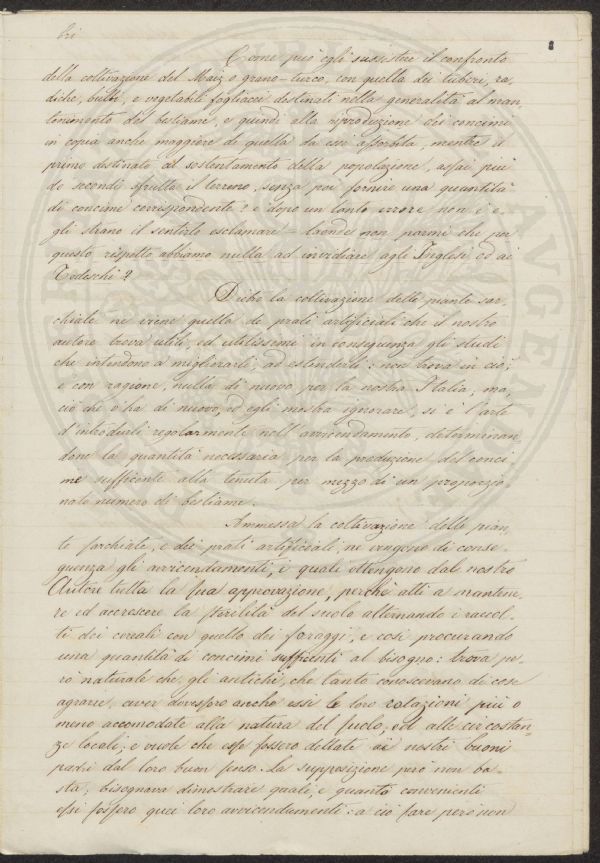 bri
8
Come può egli sussistere il confronto
della coltivazione del Maiz o grano-turco, con quella dei tuberi, ra„
diche, bulbi, e vegetabili fogliacei destinati nella generalità al man„
tenimento del bestiame, e quindi alla riproduzione dei concimi
in copia anche maggiore di quella da essi assorbita, mentre il
primo destinato al sostentamento della popolazione, assai più
de secondi sfrutta il terreno, senza poi fornire una quantità
di concime corrispondente? e dopo un tanto errore non è e„
gli strano il sentirlo esclamare = laonde non parmi che per
questo rispetto abbiamo nulla ad invidiare agli Inglesi ed ai
Tedeschi?
Dietro la coltivazione delle piante sar„
chiate ne viene quella de prati artificiali che il nostro
autore trova utili, ed utilissimi in conseguenza gli studi
che intendono a migliorarli, ad estenderli: non trova in ciò,
e con ragione, nulla di nuovo per la nostra Italia; ma,
ciò che v'ha di nuovo, ed egli mostra ignorare, si è l'arte
d'introdurli regolarmente nell'avvicendamento, determinan„
done la quantità necessaria per la produzione del conci„
me sufficente alla tenuta per mezzo di un proporzio„
nato numero di bestiame.
Ammessa la coltivazione delle pian„
te sarchiate, e dei prati artificiali, ne vengono di conse„
guenza gli avvicendamenti, i quali ottengono dal nostro
Autore tutta la sua approvazione, perchè atti a mantene„
re ed accrescere la fertilità del suolo alternando i raccol„
ti dei cereali con quello dei foraggi, e così procurando
una quantità di concimi sufficenti al bisogno: trova pe„
rò naturale che gli antichi, che tanto conoscevano di cose
agrarie, aver dovessero anche essi le loro rotazioni più o
meno accomodate alla natura del suolo, ed alle circostan„
ze locali; e vuole che esse fossero dettate ai nostri buoni
padri dal loro buon senso. La supposizione però non ba„
sta; bisognava dimostrare quali, e quanto convenienti
essi fossero quei loro avvicendamenti: a ciò fare però non